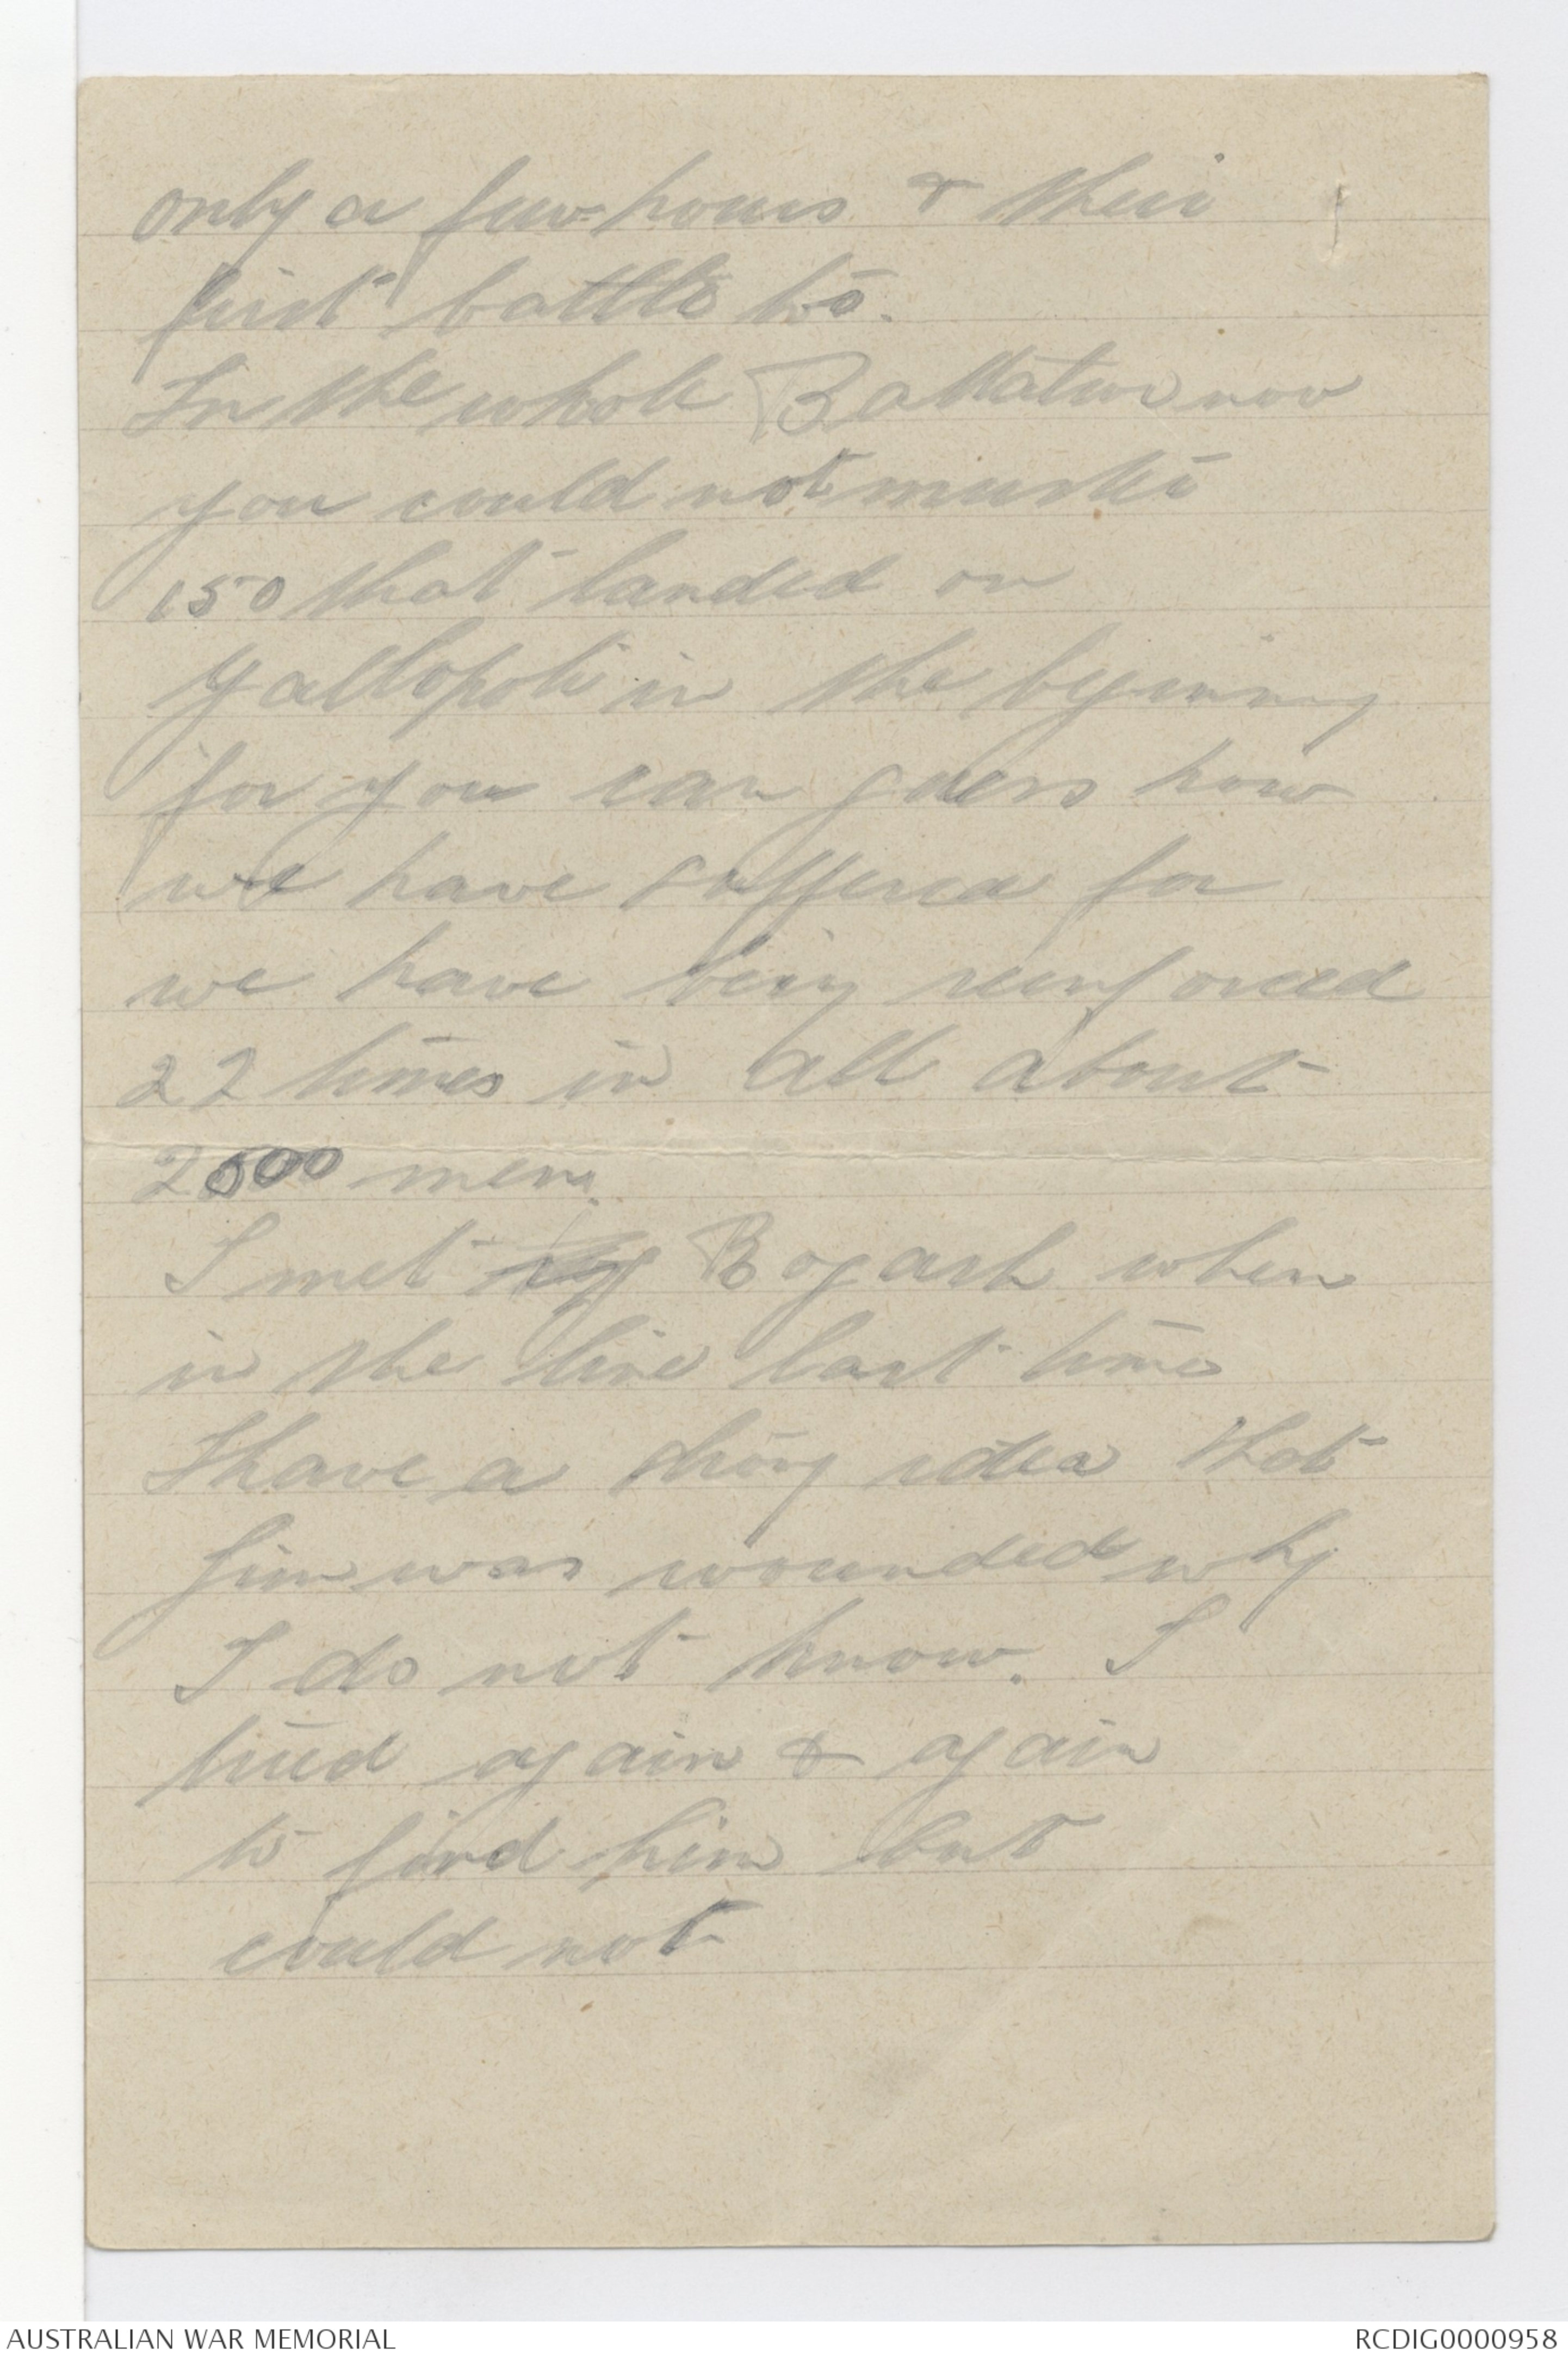 only a few hours & their
first battle to.
In the whole Battation now
you could not muster
150 that landed on
Gallopoli in the begining
for you can guess how
we have suffered for
we have being reinforced
22 times in all about
2000 men.
I met Bogash when
in the line last time
I have a strong idea that
Jim was wounded why
I do not know. I
tried again & again
to find him but
could not
AUSTRALIAN WAR MEMORIAL
RCDIG0000958